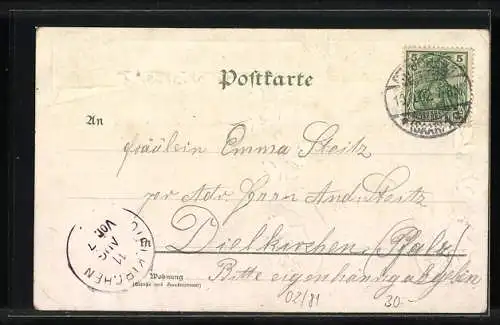 Postkarte
5 5
An
Fräulein Emma Steitz
per Adr. Herrn Andr. Steitz
Dielkirchen (Pfalz)
Bitte eigenhändig abgeben
Wohnung
(Straße und Hausnummer)
DIELKIRCHEN
11 AUG
Vor. 7
02/81
30-